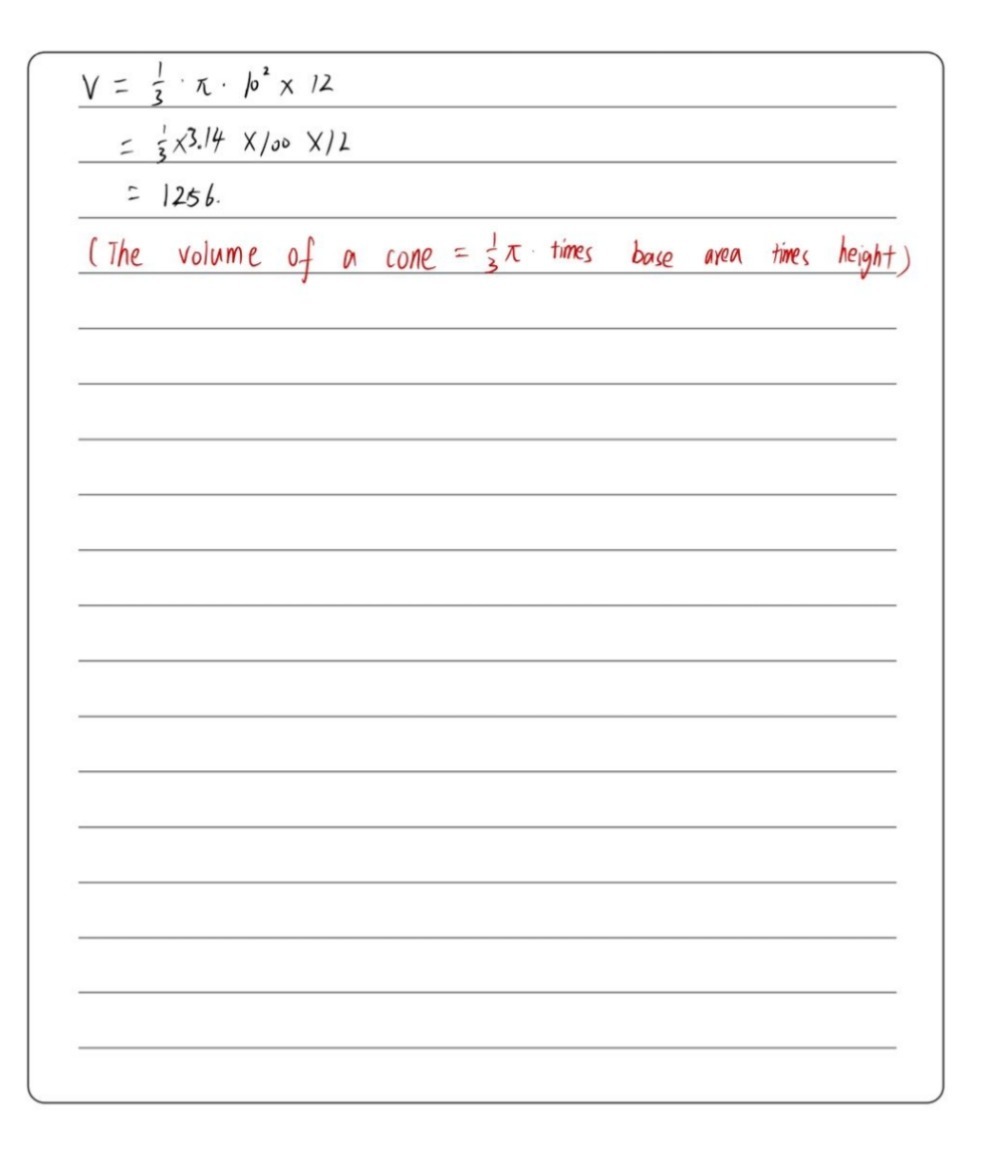 V = 1/3 · π · 10² × 12
= 1/3 × 3.14 × 100 × 12
= 1256.
(The volume of a cone = 1/3 π · times base area times height)